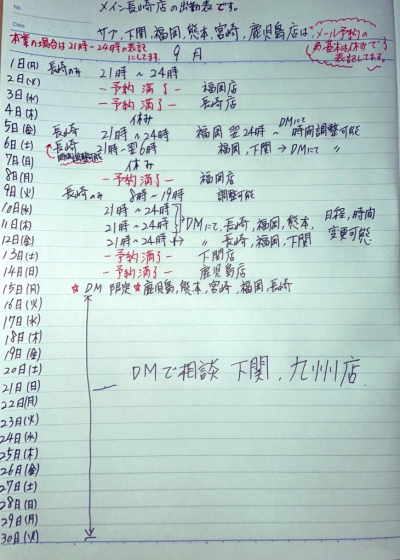 メイン長崎店の出勤表です。
サブ,下関,福岡,熊本,宮崎,鹿児島店は
メール予約の為基本は休みで表記してます。
本業の場合は21時-24時の表記にしてます。
9月
1日(月) 長崎のみ 21時〜24時
2日(火) -予約満了- 福岡店
3日(水) -予約満了- 長崎店
4日(木) 休み
5日(金) 長崎 21時〜24時 福岡翌24時〜 DMにて時間調整可能
6日(土) 長崎 21時-翌6時 福岡,下関→DMにて 〃
時間調整可能
7日(日) 休み
8日(月) -予約満了- 福岡店
9日(火) 長崎のみ 8時〜19時 調整可能
10日(水) 21時〜24時
11日(木) 21時〜24時 DMにて,長崎,福岡,熊本, 日程,時間変更可能
12日(金) 21時〜24時 〃 長崎,福岡,下関
13日(土) -予約満了- 下関店
14日(日) -予約満了- 鹿児島店
15日(月) ☆DM限定☆鹿児島,熊本,宮崎,福岡,長崎
16日(火)
17日(水)
18日(木)
19日(金)
20日(土)
21日(日) DMで相談 下関,九州店.
22日(月)
23日(火)
24日(水)
25日(木)
26日(金)
27日(土)
28日(日)
29日(月)
30日(火)